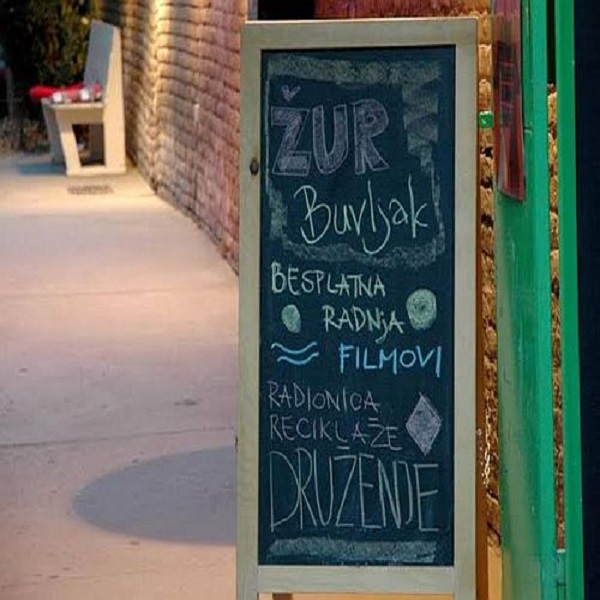 ŽUR
Buvljak
BESPLATNA
RADNjA
FILMOVI
RADIONICA
RECIKLAŽE
DRUŽENJE